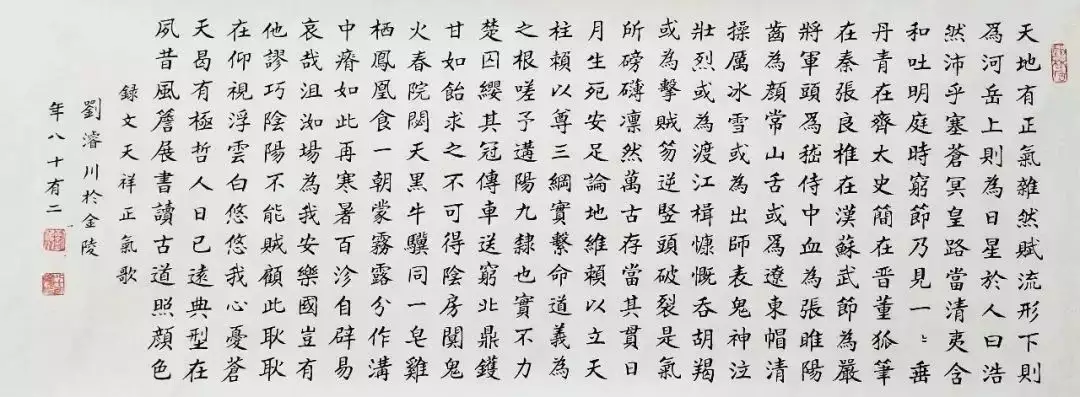 天地有正氣雜然賦流形下則
爲河岳上則為日星於人曰浩
然沛乎塞蒼冥皇路當清夷含
和吐明庭時窮節乃見一〻垂
丹青在齊太史簡在晉董狐筆
在秦張良椎在漢蘇武節為嚴
將軍頭爲嵇侍中血為張睢陽
齒為顏常山舌或爲遼東帽清
操厲冰雪或為出師表鬼神泣
壯烈或為渡江楫慷慨吞胡羯
或為擊賊笏逆竪頭破裂是氣
所磅礴凛然萬古存當其貫日
月生死安足論地維賴以立天
柱賴以尊三綱實繫命道義為
之根嗟予遘陽九隸也實不力
楚囚纓其冠傳車送窮北鼎鑊
甘如飴求之不可得陰房闃鬼
火春院閟天黑牛驥同一皂雞
栖鳳凰食一朝蒙霧露分作溝
中瘠如此再寒暑百沴自辟易
哀哉沮洳場為我安樂國豈有
他謬巧陰陽不能賊顧此耿耿
在仰視浮雲白悠悠我心憂蒼
天曷有極哲人日已遠典型在
夙昔風簷展書讀古道照顏色
録文天祥正氣歌
劉濬川於金陵
年八十有二